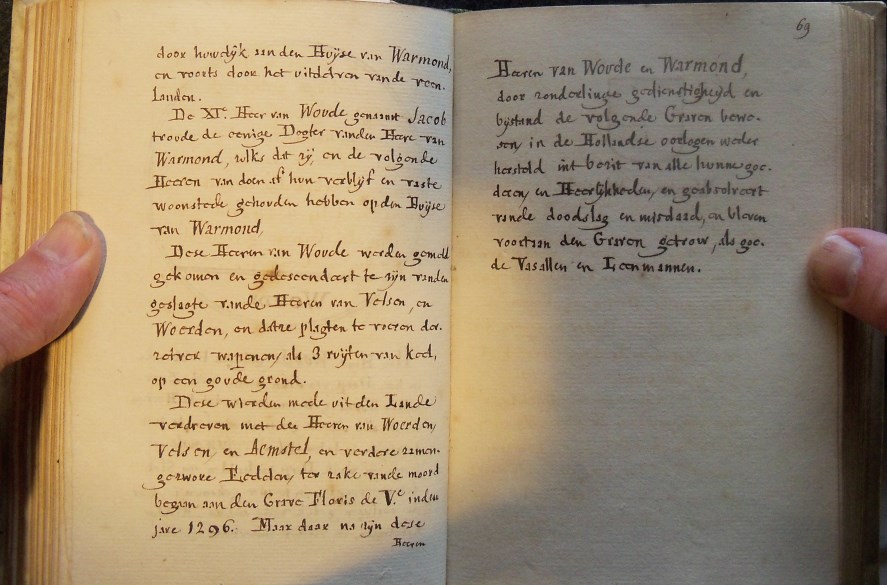 door huwelijk aan den Huijse van Warmond,
en voorts door het uitdelven vande veen-
landen.
De XIe. Heer van Woude genaamt Jacob
troude de eenige Dogter vanden Heere van
Warmond, zulks dat zij, en de volgende
Heeren van doen af hun verblijf en vaste
woonstede gehouden hebben op den Huijse
van Warmond,
Dese Heeren van Woude werden gemeld
gekomen en gedescendeert te zijn vanden
geslagte vande Heeren van Velsen, en
Woerden, en datze plagten te voeren der-
zelver wapenen, als 3 ruijten van keel,
op een goude grond.
Dese wierden mede uit den Lande
verdreven met dee Heeren van Woerden,
Velsen, en Aemstel, en verdere zamen-
gezwore Eedelen, ter zake vande moord
began aan den Grave Floris de V.e inden
jare 1296. Maar daar na zijn dese
Heeren
69
Heeren van Woude en Warmond,
door zonderlinge gedienstigheijd en
bijstand de volgende Graven bewe-
sen in de Hollandse oorlogen weder
hersteld int bezit van alle hunne goe-
deren, en Heerlijkheden, en geabsolveert
vande doodslag en misdaad, en bleven
voortaan den Graven getrow, als goe-
de Vasallen en Leenmannen.